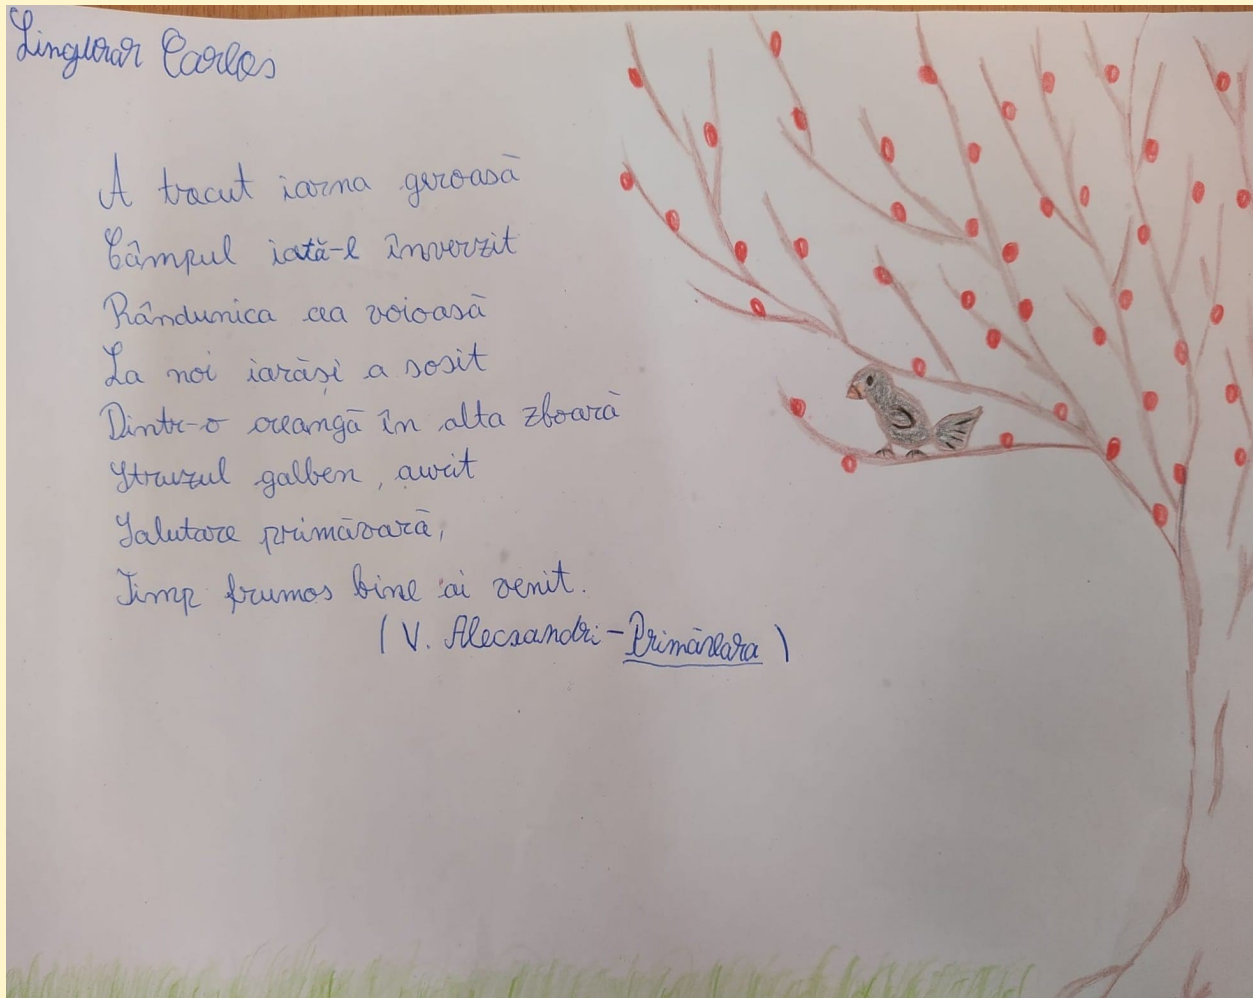 Lingurar Carlos
A trecut iarna geroasă
Câmpul iată-l înverzit
Rândunica cea voioasă
La noi iarăși a sosit
Dintr-o creangă în alta zboară
Sturzul galben, aurit
Salutare primăvară,
Timp frumos bine ai venit.
(V. Alecsandri - Primăvara)